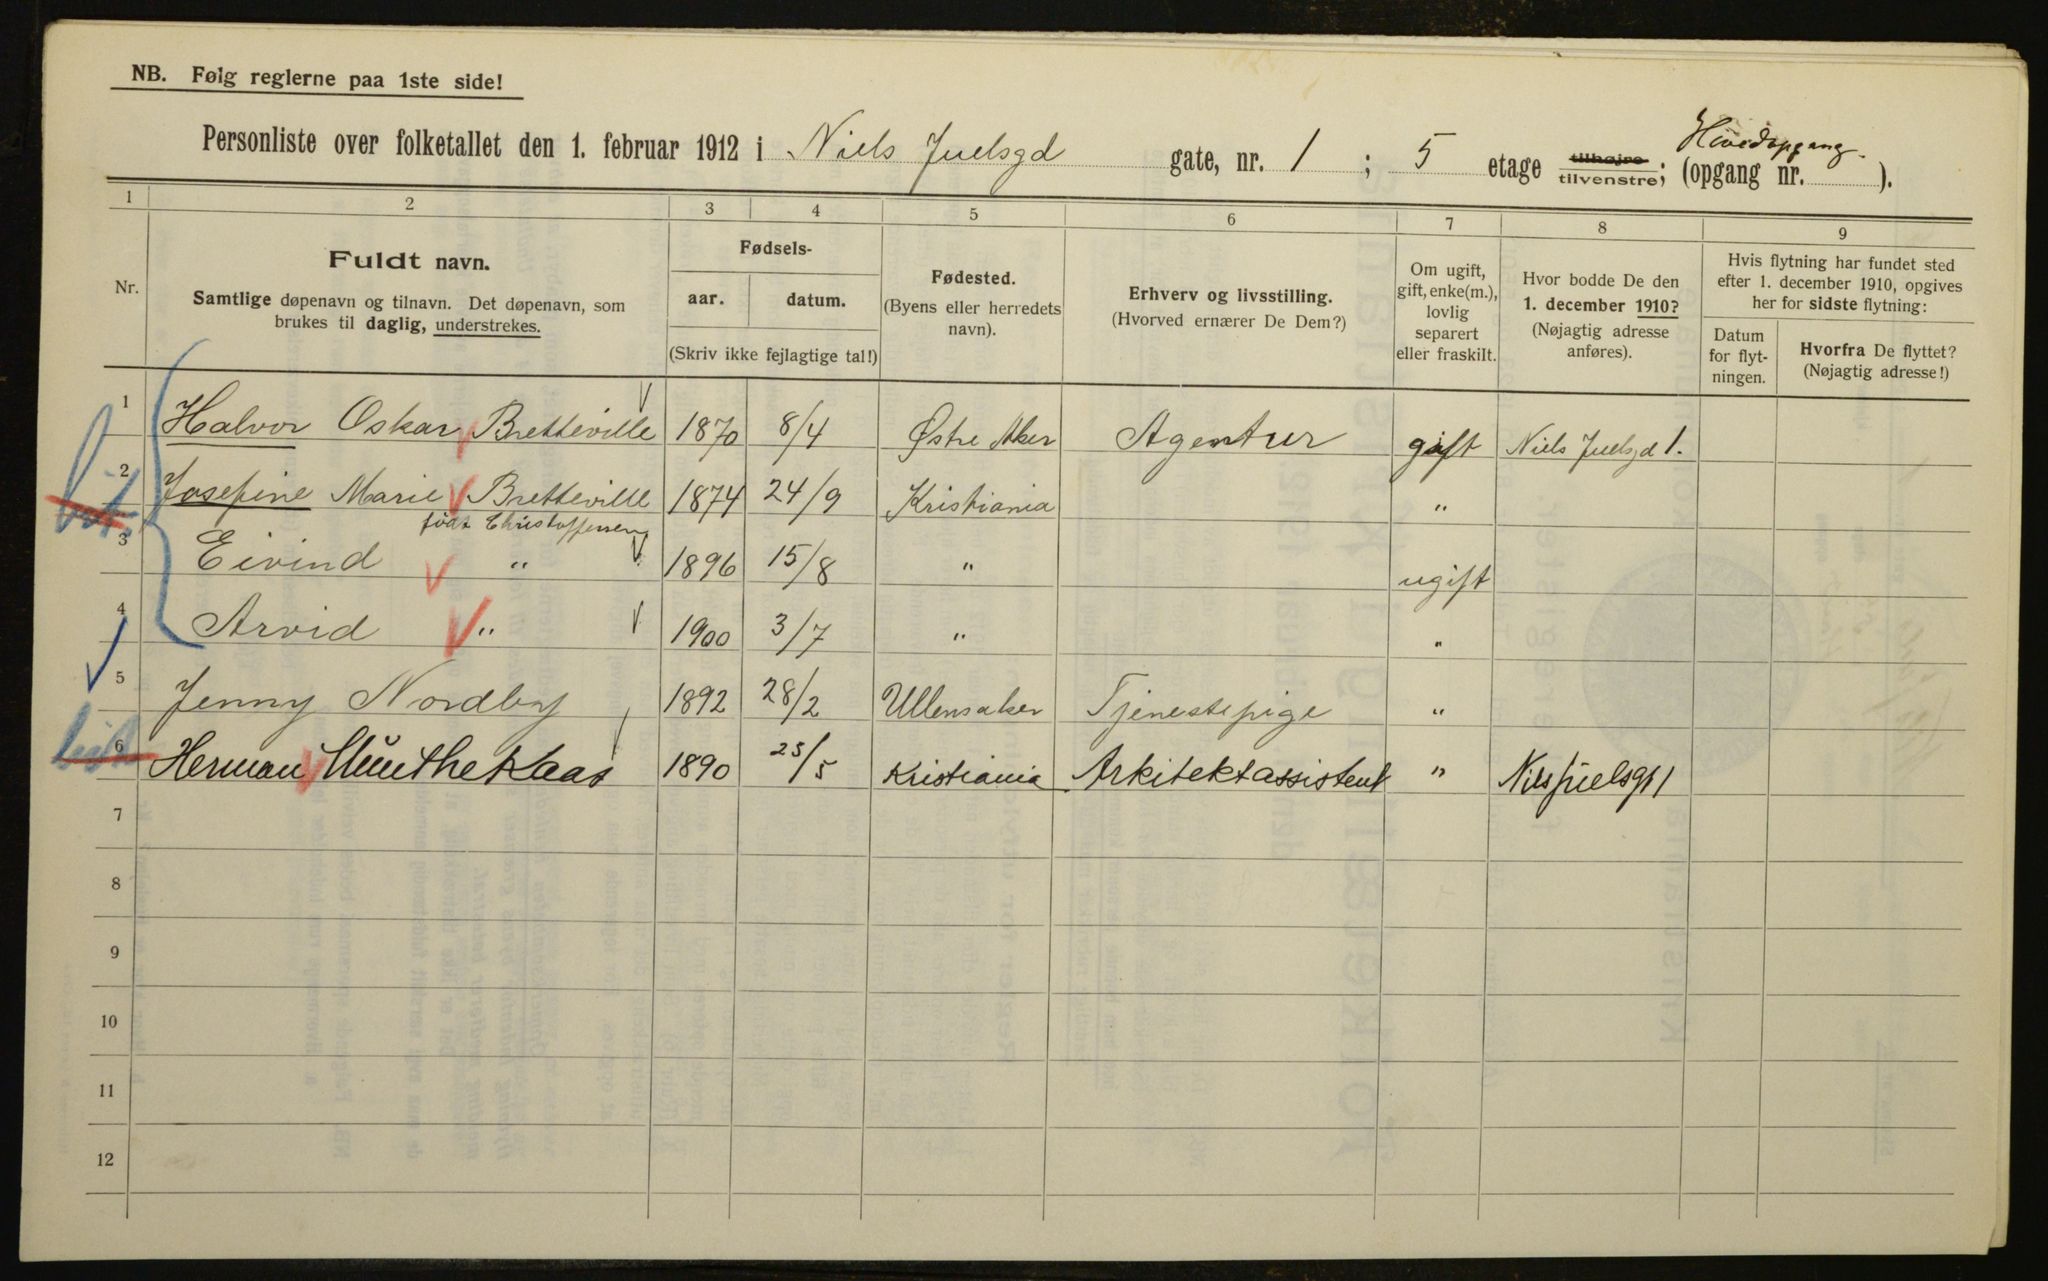 NB. Følg reglerne paa 1ste side!
Personliste over folketallet den 1. februar 1912 i Niels Juelsgd gate, nr. 1 ; 5 etage tilhøjre tilvenstre; (opgang nr. Hovedopgang. ).
1 2 3 4 5 6 7 8 9
Nr.
Fuldt navn.
Samtlige døpenavn og tilnavn. Det døpenavn, som
brukes til daglig, understrekes.
Fødsels-
aar. datum.
(Skriv ikke fejlagtige tal!)
Fødested.
(Byens eller herredets
navn).
Erhverv og livsstilling.
(Hvorved ernærer De Dem?)
Om ugift,
gift, enke(m.),
lovlig
separert
eller fraskilt.
Hvor bodde De den
1. december 1910?
(Nøjagtig adresse
anføres).
Hvis flytning har fundet sted
efter 1. december 1910, opgives
her for sidste flytning:
Datum
for flyt-
ningen.
Hvorfra De flyttet?
(Nøjagtig adresse!)
1 Halvor Oskar Bretteville 1870 8/4 Østre Aker Agentur gift Niels Juelsgd 1.
2 Josefine Marie Bretteville 1874 24/9 Kristiania "
født Christoffersen
3 Eivind " 1896 15/8 " ugift
4 Arvid " 1900 3/7 " "
5 Jenny Nordby 1892 28/2 Ullensaker Tjenestepige "
6 Herman Munthe Kaas 1890 25/5 Kristiania Arkitektassistent " Nils Juelsgt 1
7
8
9
10
11
12